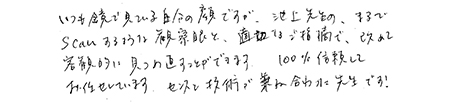 いつも鏡で見ている自分の顔ですが、池上先生の、まるで
scanするような観察眼と、適切なご指摘で、改めて
客観的に見つめ直すことができます。 100%信頼して
お任せしています。センスと技術が兼ね合わさった先生です!